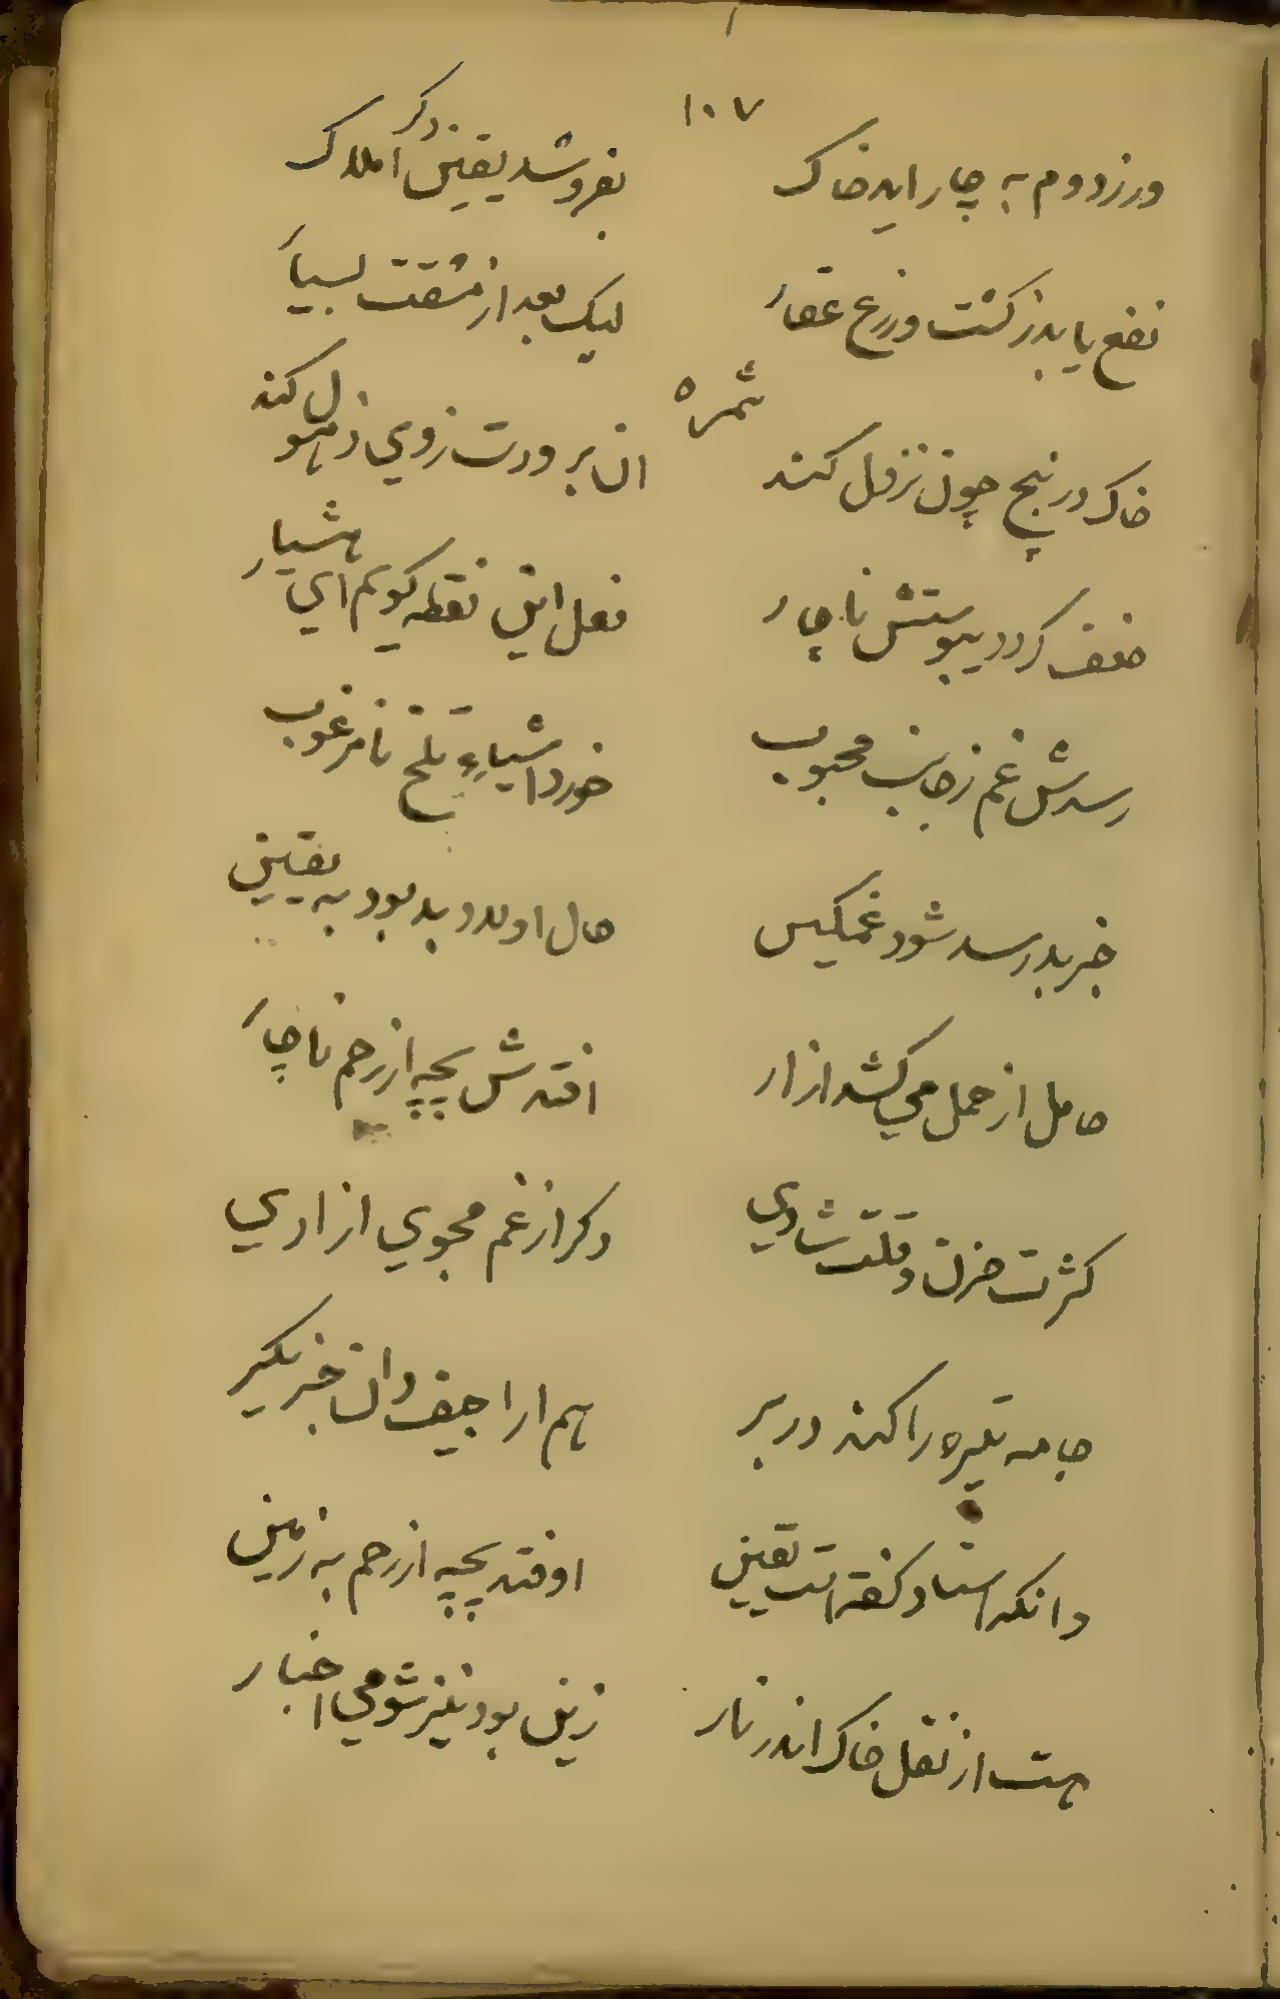 ۱۰۷
ورز دوم به چار اید خاک بفروشد یقین دکر املاک
نفع یابد ز کشت و زرع عقار لیک بعد از مشقت بسیار
ثمره
خاک در پنج چون نزول کند ان برودت زوی ذهول کند
ضعف کردد یبوستش ناچار فعل این نقطه کویم ای هشیار
رسدش غم ز جانب محبوب خورد اشیاء تلخ نامرغوب
خبر بد رسد شود غمکین حال اولاد بد بود به یقین
حامل از حمل می کشد ازار افتدش بچه از رحم ناچار
کثرت حزن و قلت شادی دکر از غم مجوی ازادی
جامه تیره را کند در بر هم اراجیف دان خبر یکسر
وانکه استاد کفته است یقین اوفتد بچه از رحم به زمین
هست از نقل خاک اندر نار زین بود نیز شومی اخبار